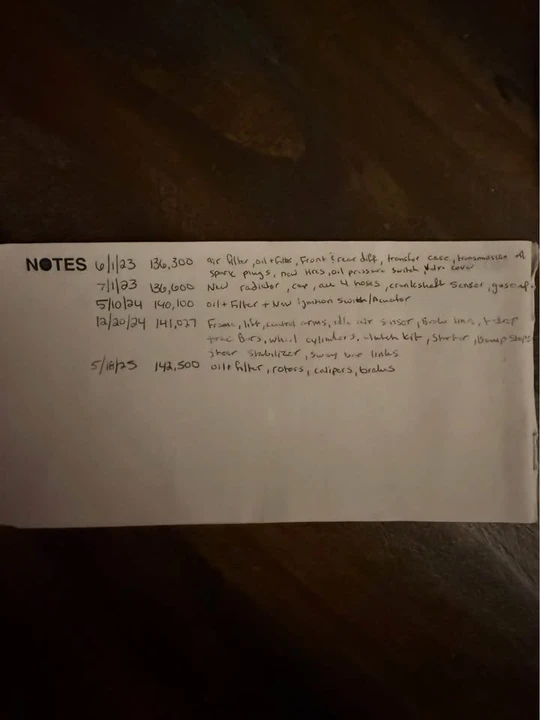 NOTES 6/1/23 136,300 air filter, oil + filter, Front & rear diff, transfer case, transmission
spark plugs, new tires, oil pressure switch cover
7/1/23 136,600 New radiator, cap, all 4 hoses, crankshaft sensor,
5/10/24 140,100 oil + Filter + New ignition switch/Actuator
12/20/24 141,027 Frame, lift, control arms, idle air sensor, Brake lines,
trac Bars, wheel cylinders, clutch kit, Starter, Bump stops
stear stabilizer, sway bar links
5/18/25 142,500 oil + filter, rotors, calipers, brakes